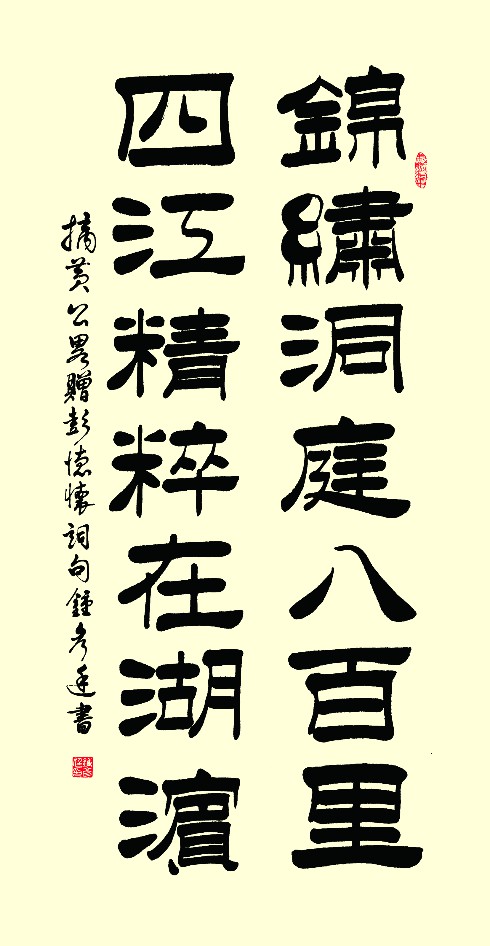 錦繡洞庭八百里
四江精粹在湖濵
摘黄公畧贈彭德懷詞句鍾孝廷書